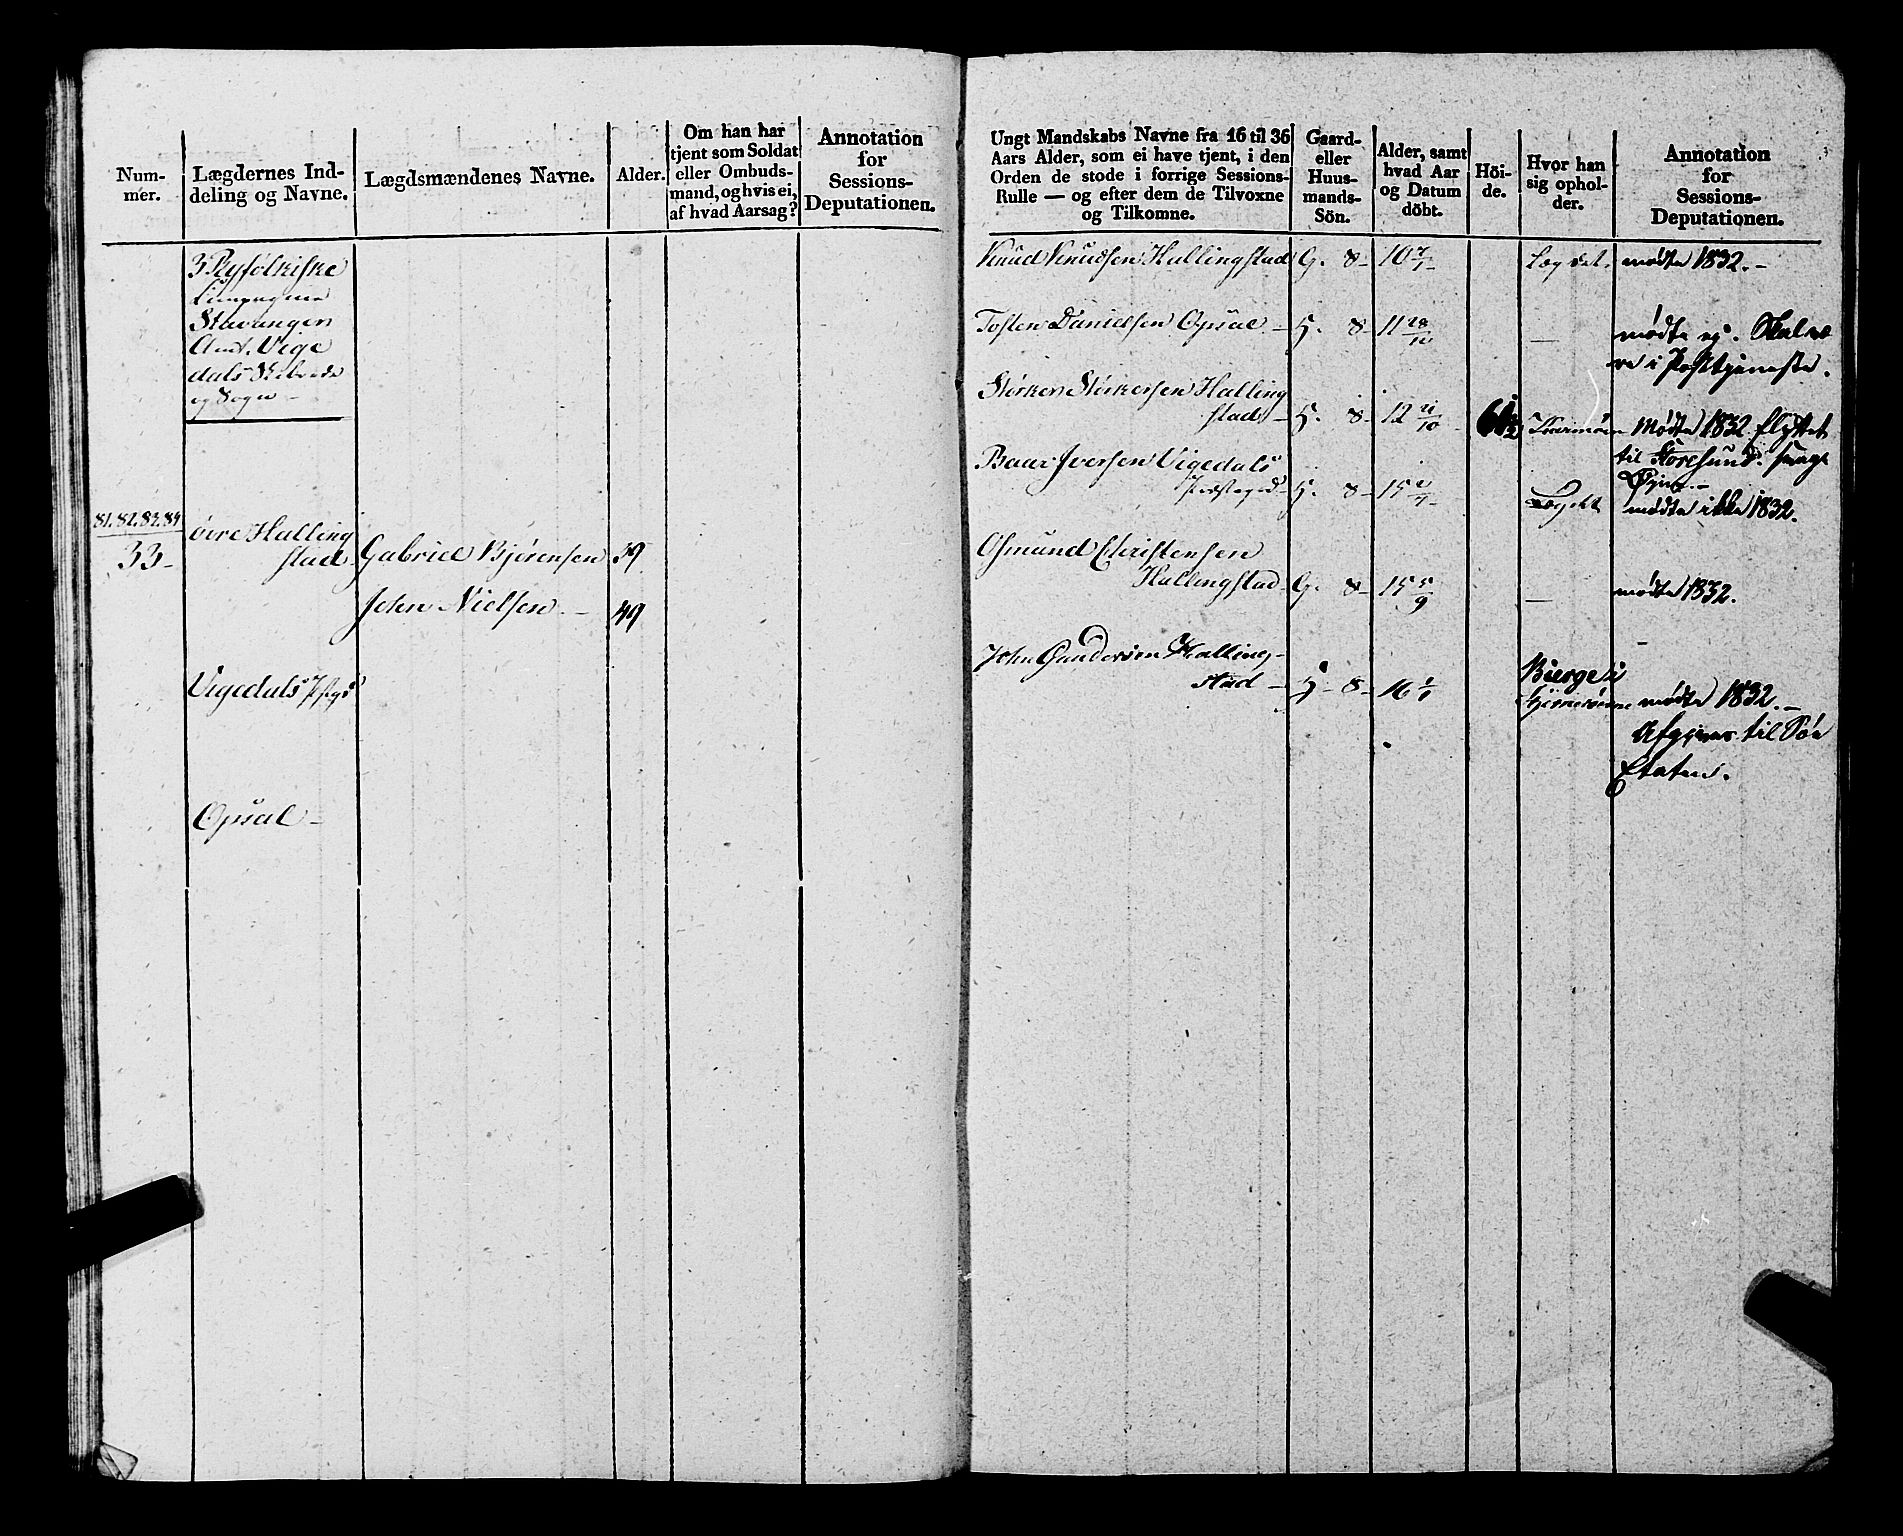 Num-
mer.
Lægdernes Ind-
deling og Navne.
Lægdsmændenes Navne.
Alder.
Om han har
tjent som Soldat
eller Ombuds-
mand, og hvis ei,
af hvad Aarsag?
Annotation
for
Sessions-
Deputationen.
3 Ryfolkiske
Compagnie
Stavanger
Amt. Vige
dals Skibrede
og Sogn –
81. 82. 83. 84
33 –
övre Halling
stad
Gabriel Bjørensen 39
John Nielsen – 49
Vigedals Pstgd
Opsal –
Ungt Mandskabs Navne fra 16 til 36
Aars Alder, som ei have tjent, i den
Orden de stode i forrige Sessions-
Rulle — og efter dem de Tilvoxne
og Tilkomne.
Gaard-
eller
Huus-
mands-
Sön.
Alder, samt
hvad Aar
og Datum
döbt.
Höi-
de.
Hvor han
sig ophol-
der.
Annotation
for
Sessions-
Deputationen.
Knud Knudsen Hallingstad G. 8 – 10 Lægdet. mødte 1832. –
Tosten Danielsen Opsal – H. 8 – 11 28/12 — mødte ej. Skal væ
re i Posttjeneste.
Størker Størkersen Halling
stad – H. 8 – 12 21/10 61 1/2 Karmøen Mødte 1832 flyttet
til Storesund. svage
Øyne –
Baar Iversen Vigedals
Præstegd – H. 8 – 15 Lægdet mødte ikke 1832.
Osmund Christensen
Hallingstad G. 8 – 15 5/9 — mødte 1832.
John Gundersen Halling –
stad – H – 8 – 16 Bierge i
mødte 1832. –
Afgives til Söe
Etaten.